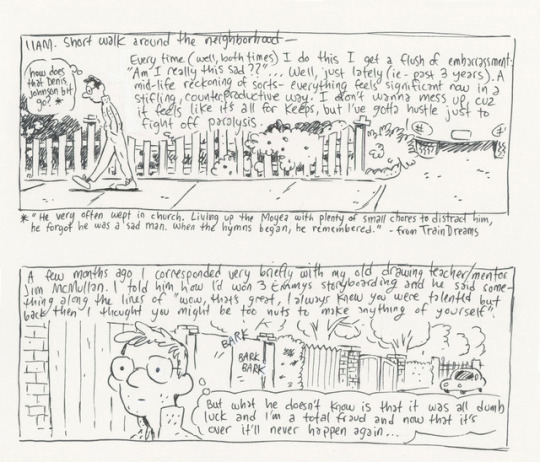 11AM. Short walk around the neighborhood—
how does
that Denis
Johnson bit
go? *
Every time (well, both times) I do this I get a flush of embarrassment:
"Am I really this sad??"... Well, just lately (ie - past 3 years). A
mid-life reckoning of sorts - everything feels significant now in a
stifling, counterproductive way. I don't wanna mess up, cuz
it feels like it's all for keeps, but I've gotta hustle just to
fight off paralysis.
* "He very often wept in church. Living up the Moyea with plenty of small chores to distract him,
he forgot he was a sad man. When the hymns began, he remembered." - from Train Dreams
A few months ago I corresponded very briefly with my old drawing teacher/mentor
Jim McMullan. I told him how I'd won 3 Emmys storyboarding and he said some-
thing along the lines of "wow, that's great, I always knew you were talented but
back then I thought you might be too nuts to make anything of yourself".
BARK
BARK
BARK
But what he doesn't know is that it was all dumb
luck and I'm a total fraud and now that it's
over it'll never happen again...